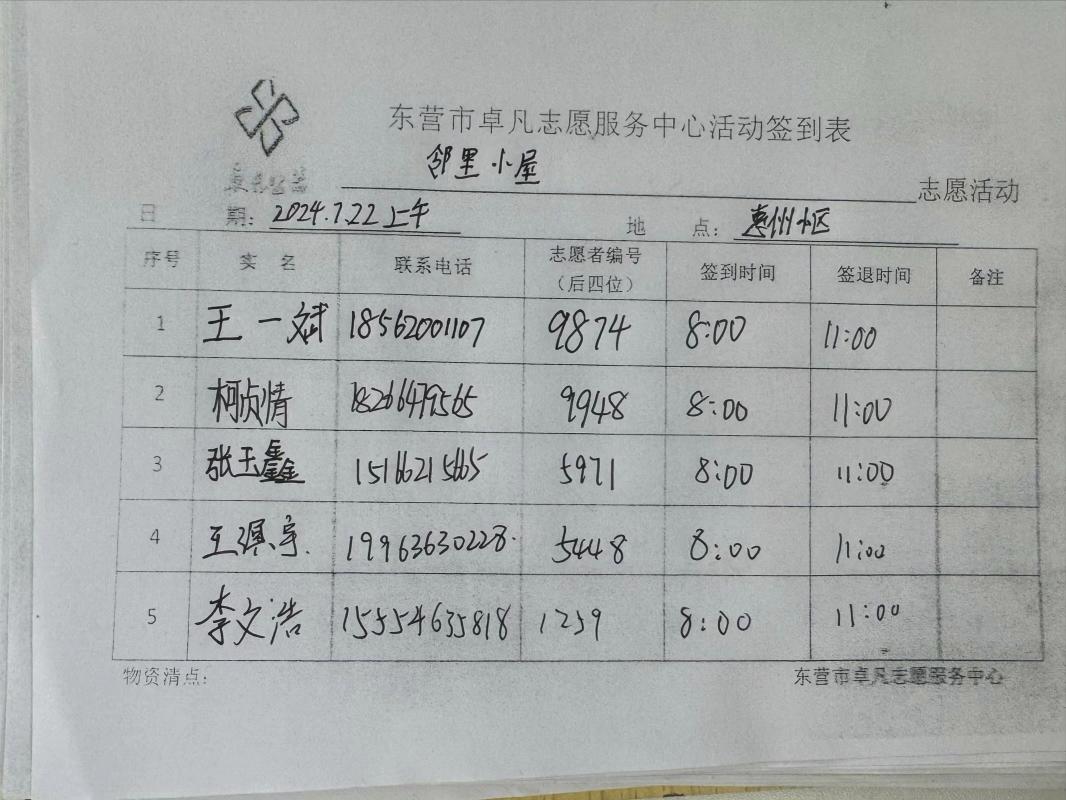 东营市卓凡志愿服务中心活动签到表
邻里小屋 志愿活动
日 期: 2024.7.22上午 地 点: 惠州小区
序号 实 名 联系电话 志愿者编号（后四位） 签到时间 签退时间 备注
1 王一斌 18562001107 9874 8:00 11:00
2 柯贞情 18266479565 9948 8:00 11:00
3 张玉鑫 5971 8:00 11:00
4 19963630228 5448 8:00 11:00
5 李文浩 15554635818 1259 8:00 11:00
物资清点: 东营市卓凡志愿服务中心